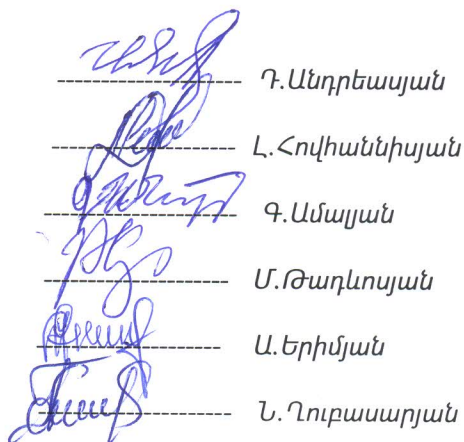 Դ.Անդրեասյան
Լ.Հովհաննիսյան
Գ.Ամալյան
Մ.Թադևոսյան
Ա.Երիմյան
Ն.Ղուբասարյան